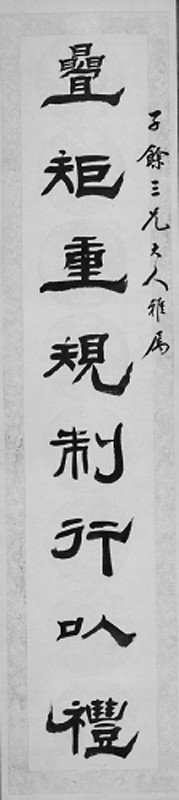 子馀三兄大人雅属
疊矩重規制行㕥禮